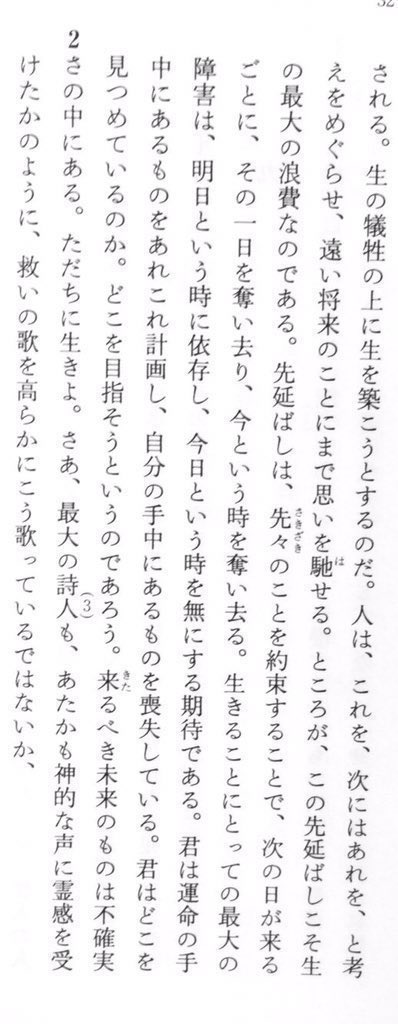 32
される。生の犠牲の上に生を築こうとするのだ。人は、これを、次にはあれを、と考
えをめぐらせ、遠い将来のことにまで思いを馳せる。ところが、この先延ばしこそ生
の最大の浪費なのである。先延ばしは、先々のことを約束することで、次の日が来る
ごとに、その一日を奪い去り、今という時を奪い去る。生きることにとっての最大の
障害は、明日という時に依存し、今日という時を無にする期待である。君は運命の手
中にあるものをあれこれ計画し、自分の手中にあるものを喪失している。君はどこを
見つめているのか。どこを目指そうというのであろう。来るべき未来のものは不確実
2 さの中にある。ただちに生きよ。さあ、最大の詩人(3)も、あたかも神的な声に霊感を受
けたかのように、救いの歌を高らかにこう歌っているではないか、